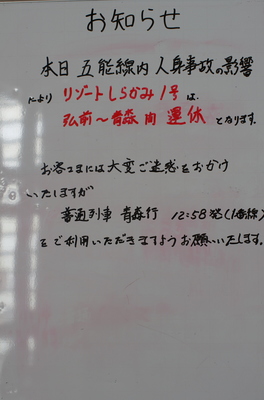 お知らせ
本日 五能線内 人身事故の影響
により リゾートしらかみ1号 は、
弘前〜青森 間 運休 となります。
お客さまには大変ご迷惑をおかけ
いたしますが
普通列車 青森行 12:58発(1番線)
をご利用いただきますようお願いいたします。